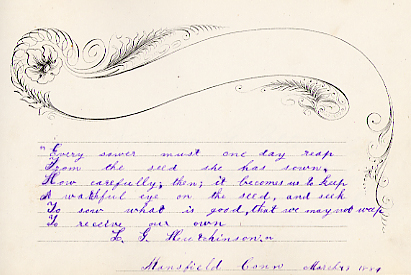 "Every sower must one day reap
From the seed she has sown.
How carefully, then, it becomes us to keep
A watchful eye on the seed, and seek
To sow what is good, that we may not weep
To receive our own.
L. G. Hutchinson."
Mansfield Conn March